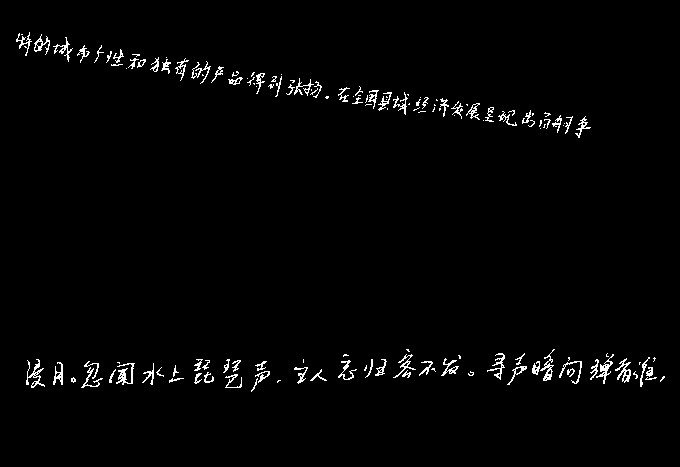 特的城市个性和独有的产品得到张扬。在全国县域经济发展呈现出百舸争
浸月。忽闻水上琵琶声，主人忘归客不发。寻声暗问弹者谁，